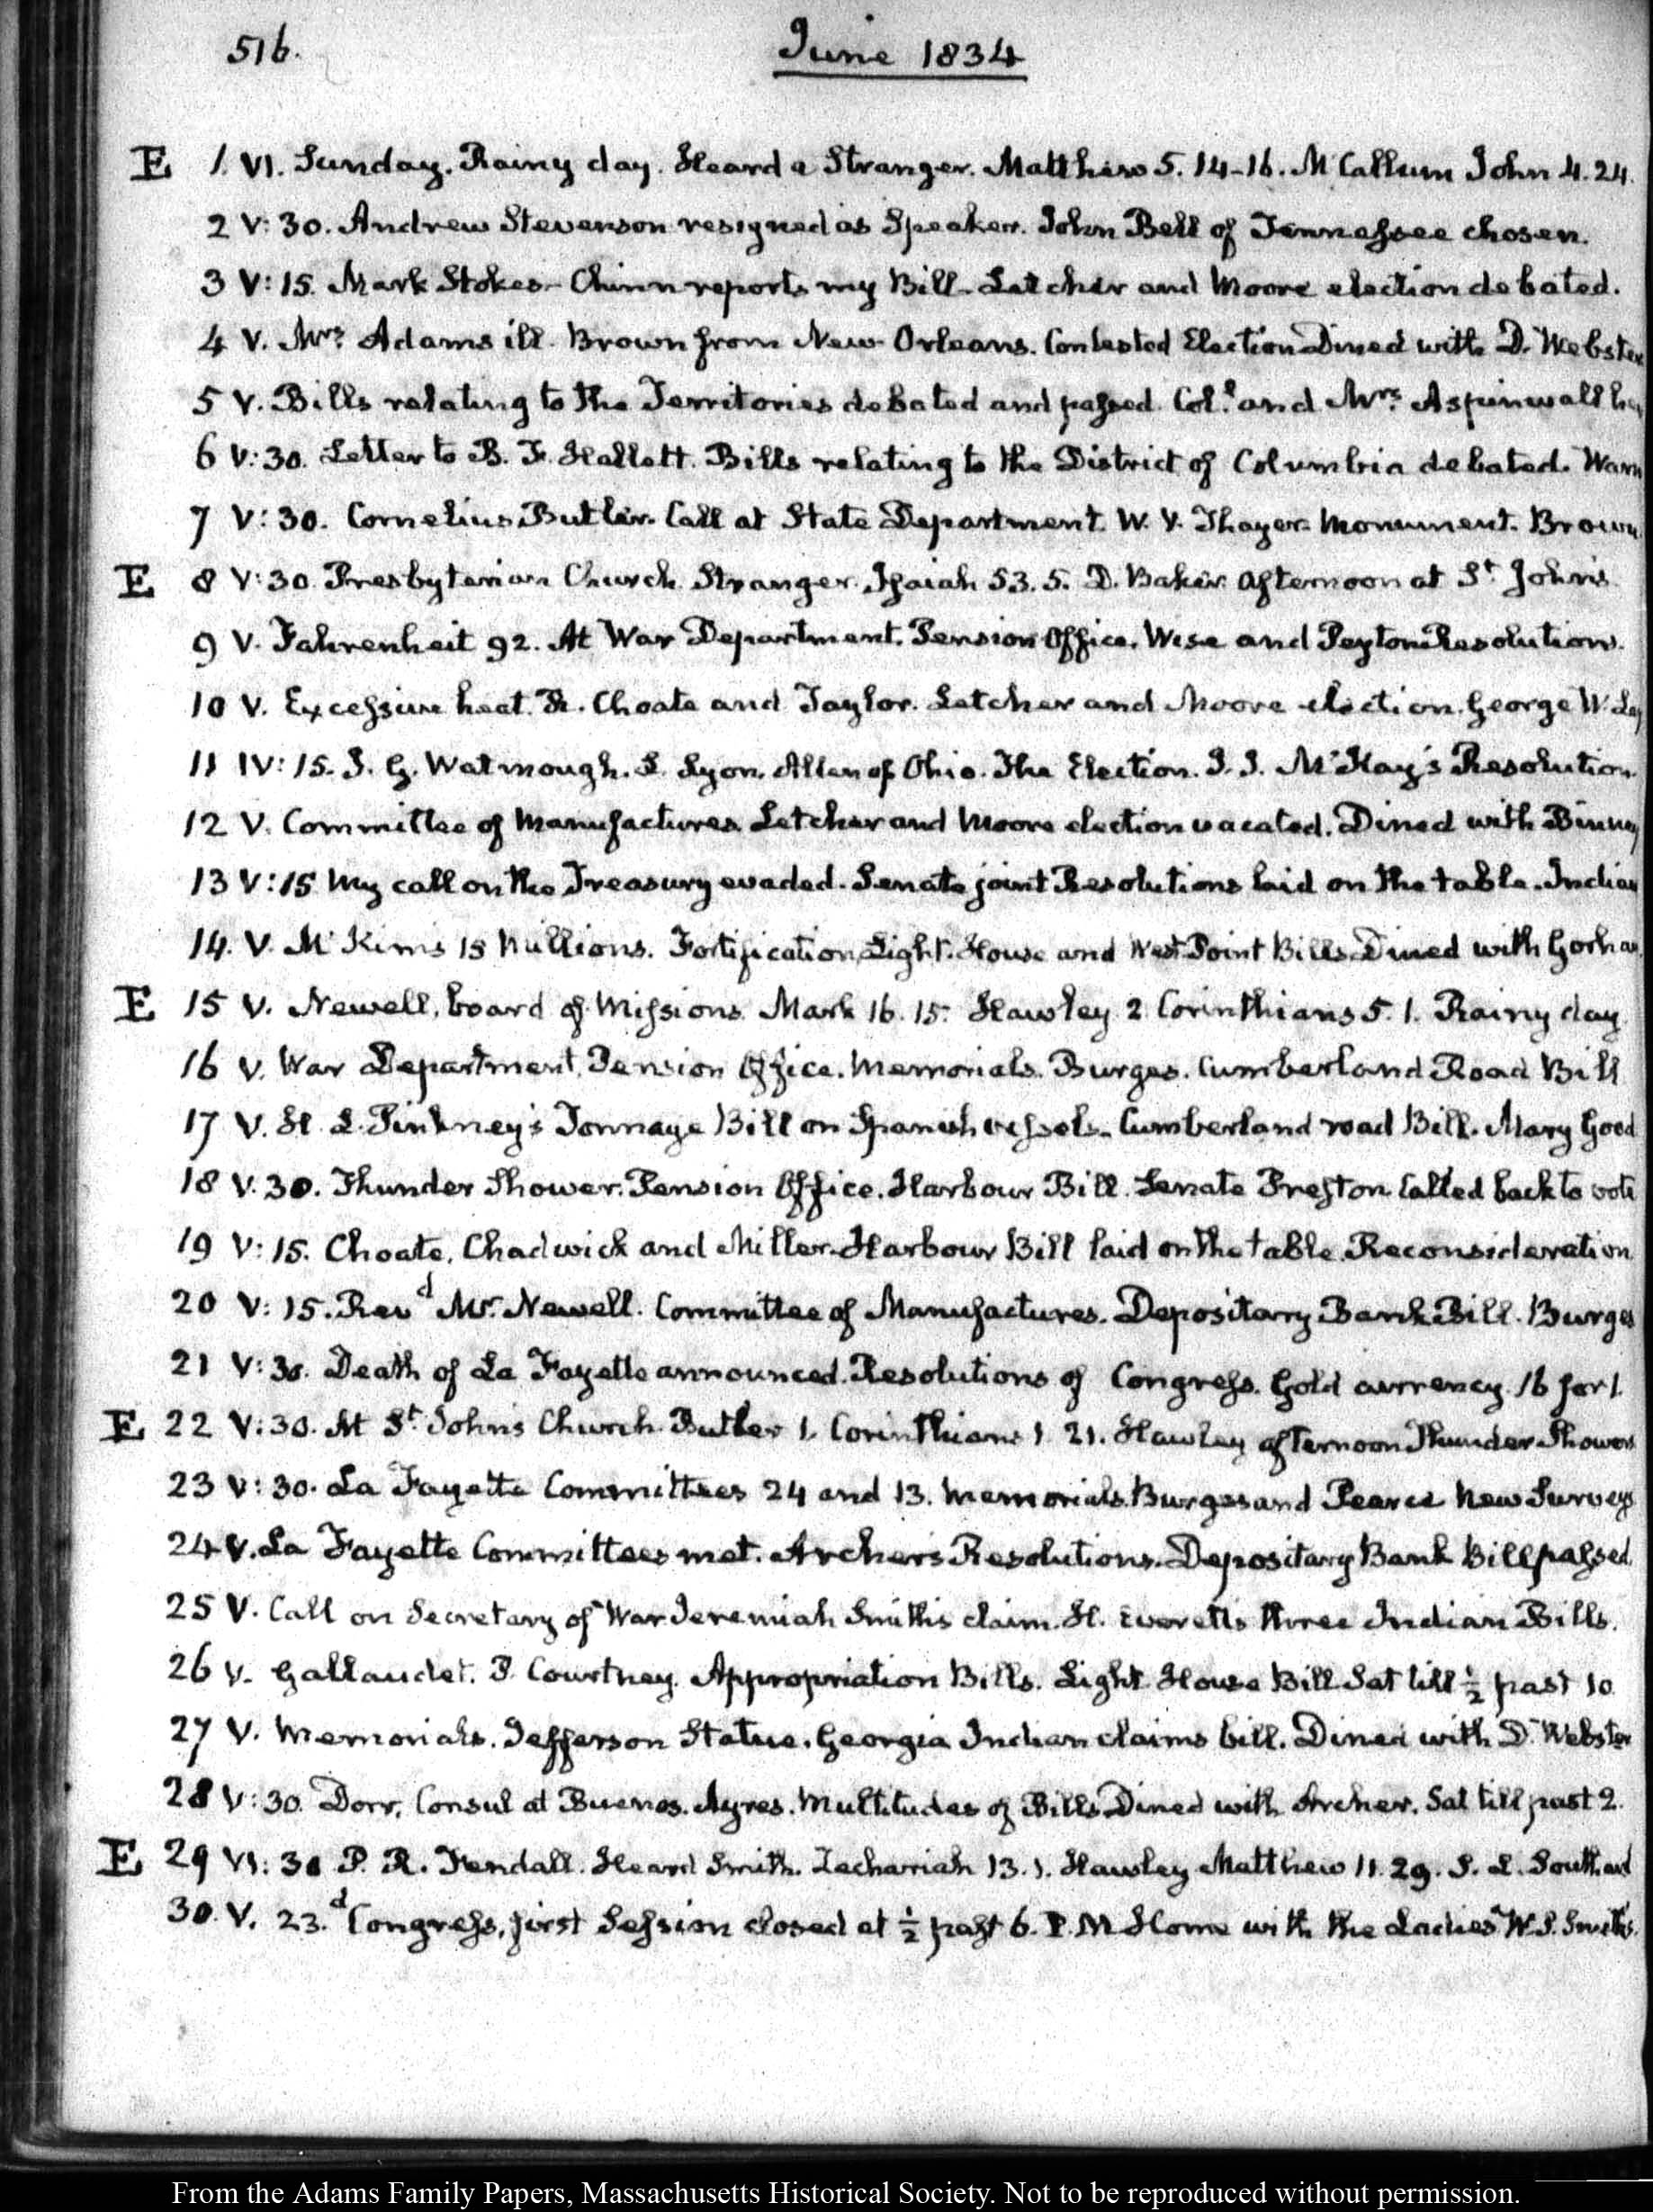 516.
June 1834
E 1. VI. Sunday. Rainy day. Heard a Stranger. Matthew 5. 14-16. McCallum John 4. 24.
2 V: 30. Andrew Stevenson resigned as Speaker. John Bell of Tennessee chosen.
3 V: 15. Mark Stokes- Chinn reports my Bill- Letcher and Moore election debated.
4 V. Mrs. Adams ill. Brown from New-Orleans. Contested Election Dined with D. Webster
5 V. Bills relating to the Territories debated and passed. Col. and Mrs. Aspinwall
6 V: 30. Letter to B. F. Hallett. Bills relating to the District of Columbia debated. Warm
7 V: 30. Cornelius Butler. Call at State Department. W. V. Thayer. Monument. Brown
E 8 V: 30. Presbyterian Church. Stranger. Isaiah 53. 5. D. Baker. Afternoon at St. John's
9 V. Fahrenheit 92. At War Department. Pension Office. Wise and Peyton Resolution.
10 V. Excessive heat. R. Choate and Taylor. Letcher and Moore election. George W. Lay
11 IV: 15. J. G. Watmough. L. Lyon. Allen of Ohio. The Election. J. J. McKay's Resolution
12 V. Committee of Manufactures. Letcher and Moore election vacated. Dined with Binney
13 V: 15 My call on the Treasury evaded. Senate joint Resolutions laid on the table. Indian
14. V. McKim's 15 Millions. Fortification, Light-House and West Point Bills Dined with Gorham
E 15 V. Newell, board of Missions. Mark 16. 15. Hawley 2. Corinthians 5. 1. Rainy day
16 V. War Department, Pension Office. Memorials. Burges. Cumberland Road Bill
17 V. H. L. Pinkney's Tonnage Bill on Spanish vessels. Cumberland road Bill. Mary Good
18 V. 30. Thunder Shower. Pension Office. Harbour Bill. Senate Preston. Called back to vote
19 V: 15. Choate, Chadwick and Miller. Harbour Bill laid on the table. Reconsideration
20 V: 15. Revd. Mr. Newell. Committee of Manufactures. Depositary Bank Bill. Burges
21 V: 30. Death of La Fayette announced. Resolutions of Congress. Gold currency. 16 for 1.
E 22 V: 30. At St. John's Church. Butler 1. Corinthians 1. 21. Hawley afternoon Thunder Shower
23 V: 30. La Fayette Committees 24 and 13. Memorials. Burges and Pearce New Surveys
24 V. La Fayette Committees met. Archer's Resolutions. Depositary Bank Bill passed.
25 V. Call on Secretary of War. Jeremiah Smith's claim. H. Everett's three Indian Bills.
26 V. Gallaudet. P. Courtney. Appropriation Bills. Light House Bill. Sat till ½ past 10
27 V. Memorials. Jefferson Statue. Georgia Indian claims bill. Dined with D. Webster
28 V: 30. Dorr, Consul at Buenos-Ayres. Multitudes of Bills Dined with Archer. Sat till past 2.
E 29 VI: 30 P. R. Fendall. Heard Smith. Zachariah 13. 1. Hawley Matthew 11. 29. S. L. Southard
30. V. 23.d Congress, first Session closed at ½ past 6. P.M. Home with the Ladies W. S. Smiths.
From the Adams Family Papers, Massachusetts Historical Society. Not to be reproduced without permission.